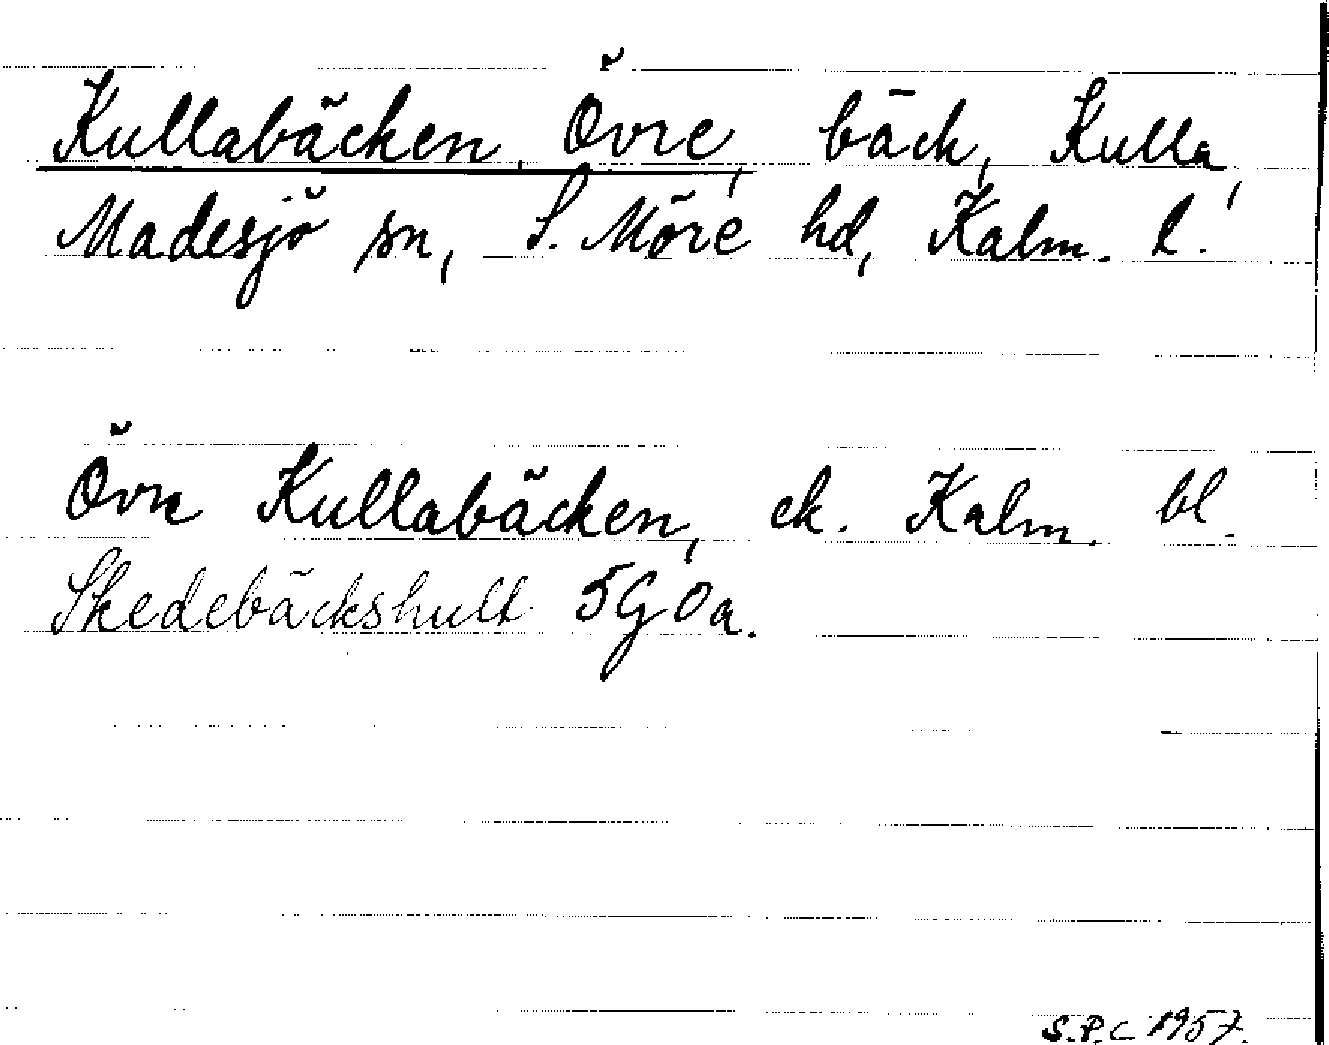 Kullabäcken, Övre, bäck, Kulla,
Madesjö sn, S. Möre hd, Kalm. l.
Övre Kullabäcken, ek. Kalm. bl.
Skedebäckshult 5G0a.
S.P.C 1957.